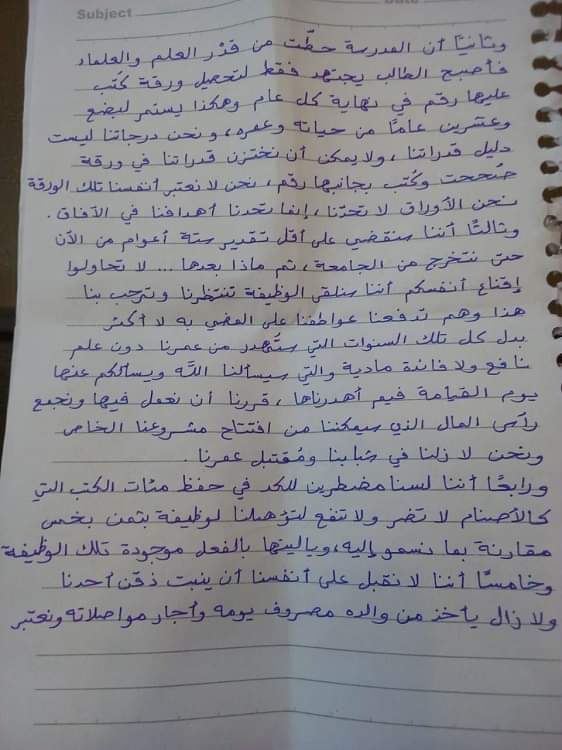 Subject
وثانيًا أن المدرسة حطّت من قدْر العلم والعلماء
فأصبح الطالب يجتهد فقط لتحصيل ورقة كُتب
عليها رقم في نهاية كل عام وهكذا يستمر لبضع
وعشرين عامًا من حياته وعمره، ونحن درجاتنا ليست
دليل قدراتنا، ولا يمكن أن نختزن قدراتنا في ورقة
صُححت وكُتب بجانبها رقم، نحن لا نعتبر أنفسنا تلك الورقة
نحن الأوراق لا تحدّنا، إنما تحدنا أهدافنا في الآفاق.
وثالثًا أننا سنقضي على أقل تقدير ستة أعوام من الآن
حتى نتخرج من الجامعة، ثم ماذا بعدها... لا تحاولوا
إقناع أنفسكم أننا سنلقى الوظيفة تنتظرنا وترحب بنا
هذا وهم تدفعنا عواطفنا على المضي به لا أكثر
بدل كل تلك السنوات التي ستُهدر من عمرنا دون علم
نافع ولا فائدة مادية والتي سيسألنا الله ويسألكم عنها
يوم القيامة فيم أهدرناها، قررنا أن نعمل فيها ونجمع
رأس المال الذي سيمكننا من افتتاح مشروعنا الخاص
ونحن لا زلنا في شبابنا ومُقتبل عمرنا.
ورابعًا أننا لسنا مضطرين للكد في حفظ مئات الكتب التي
كالأصنام لا تضر ولا تنفع لتؤهلنا لوظيفة بثمن بخس
مقارنة بما نسمو إليه، وياليتها بالفعل موجودة تلك الوظيفة
وخامسًا أننا لا نقبل على أنفسنا أن ينبت ذقن أحدنا
ولا زال يأخذ من والده مصروف يومه وأجار مواصلاته ونعتبر